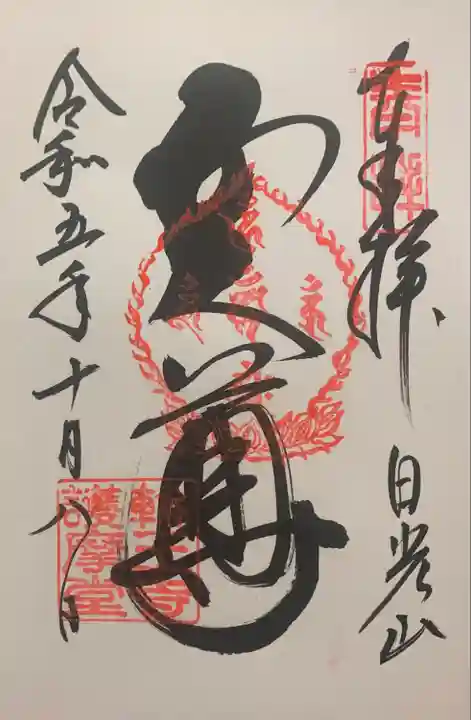 奉拝 日光山
五大尊
令和五年十月八日
輪王寺
護摩堂